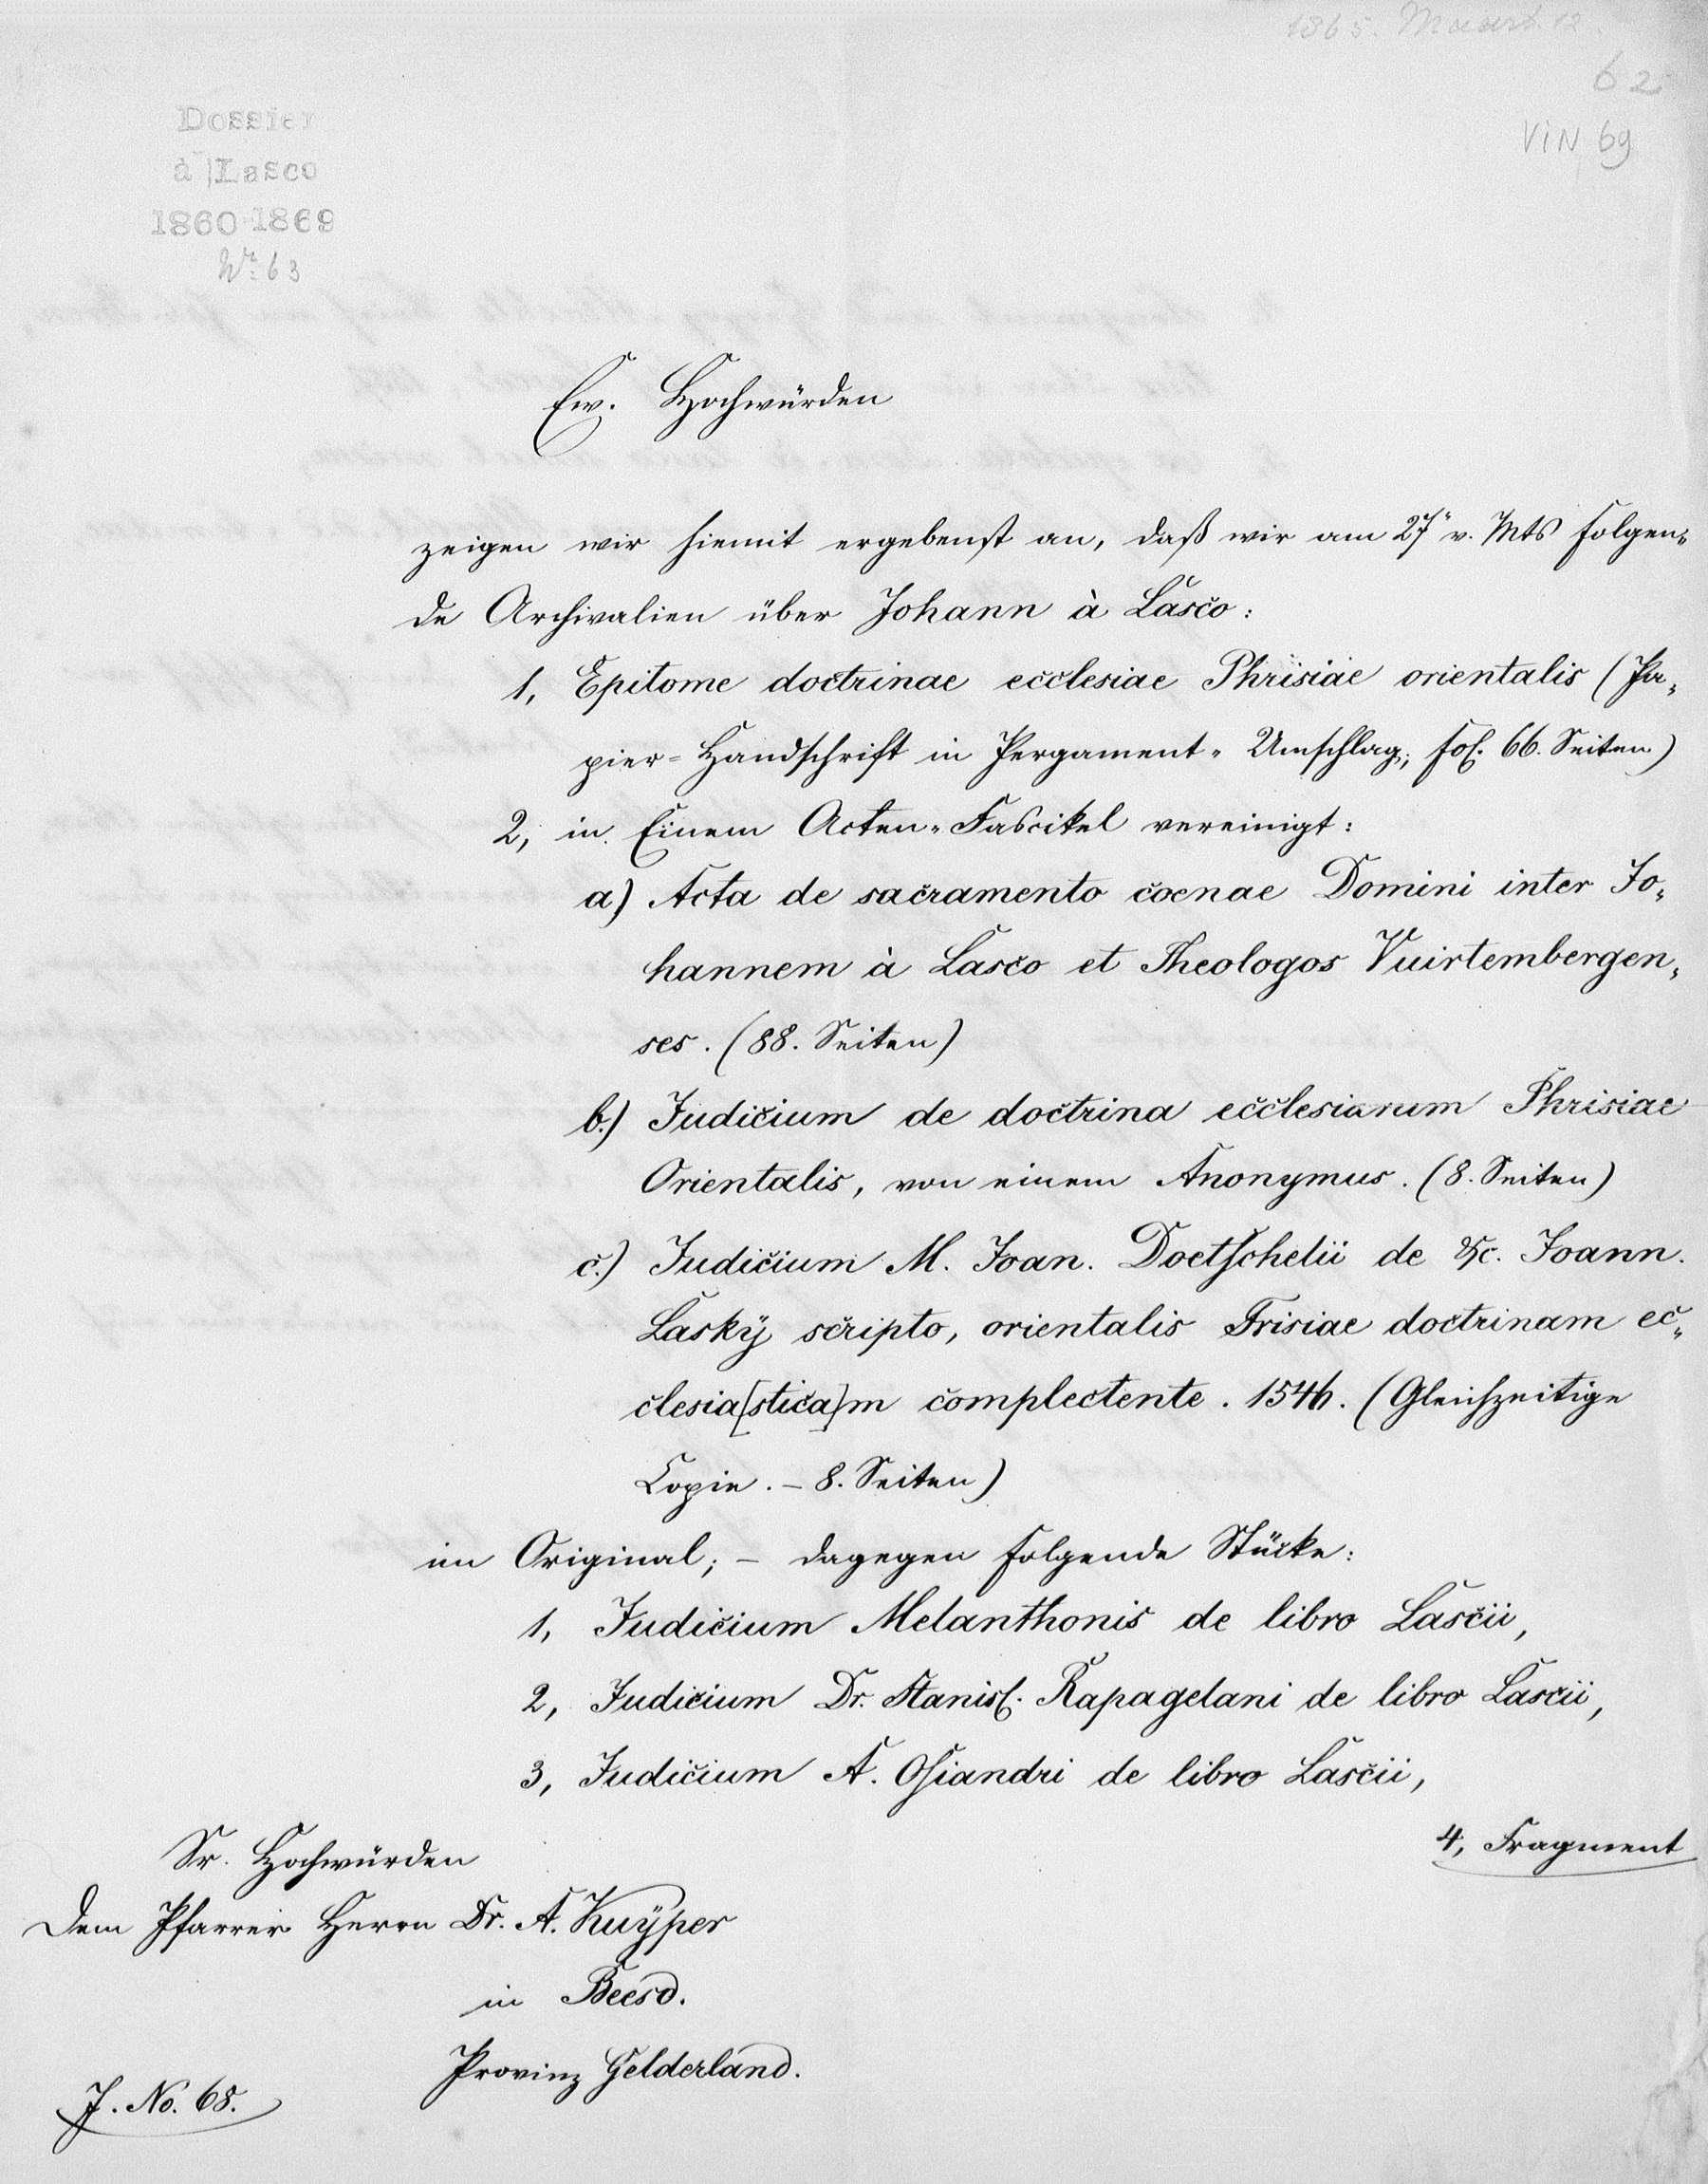 1865. Maart 12.
62
VIN 69
Dossier
à Lasco
1860-1869
Nr. 63
Ew. Hochwürden
zeigen wir hiemit ergebenst an, daß wir am 27" v. Mts folgen-
de Archivalien über Johann à Lasco:
1, Epitome doctrinae ecclesiae Phrisiae orientalis (Pa-
pier-Handschrift in Pergament-Umschlag; fol. 66. Seiten)
2, in Einem Acten-Fascikel vereinigt:
a) Acta de sacramento coenae Domini inter Jo-
hannem à Lasco et Theologos Vuirtembergen-
ses. (88. Seiten)
b.) Judicium de doctrina ecclesiarum Phrisiae
Orientalis, von einem Anonymus. (8. Seiten)
c.) Judicium M. Joan. Doetschelii de &c. Joann.
Lasky scripto, orientalis Frisiae doctrinam ec-
clesia[stica]m complectente. 1544. (Gleichzeitige
Copie. – 8. Seiten)
im Original; – dagegen folgende Stücke:
1, Judicium Melanthonis de libro Lascii,
2, Judicium Dr. Stanisl. Rapagelani de libro Lascii,
3, Judicium A. Osiandri de libro Lascii,
4, Fragment
Sr. Hochwürden
dem Pfarrer Herrn Dr. A. Kuÿper
in Beesd.
Provinz Gelderland.
J. No. 68.